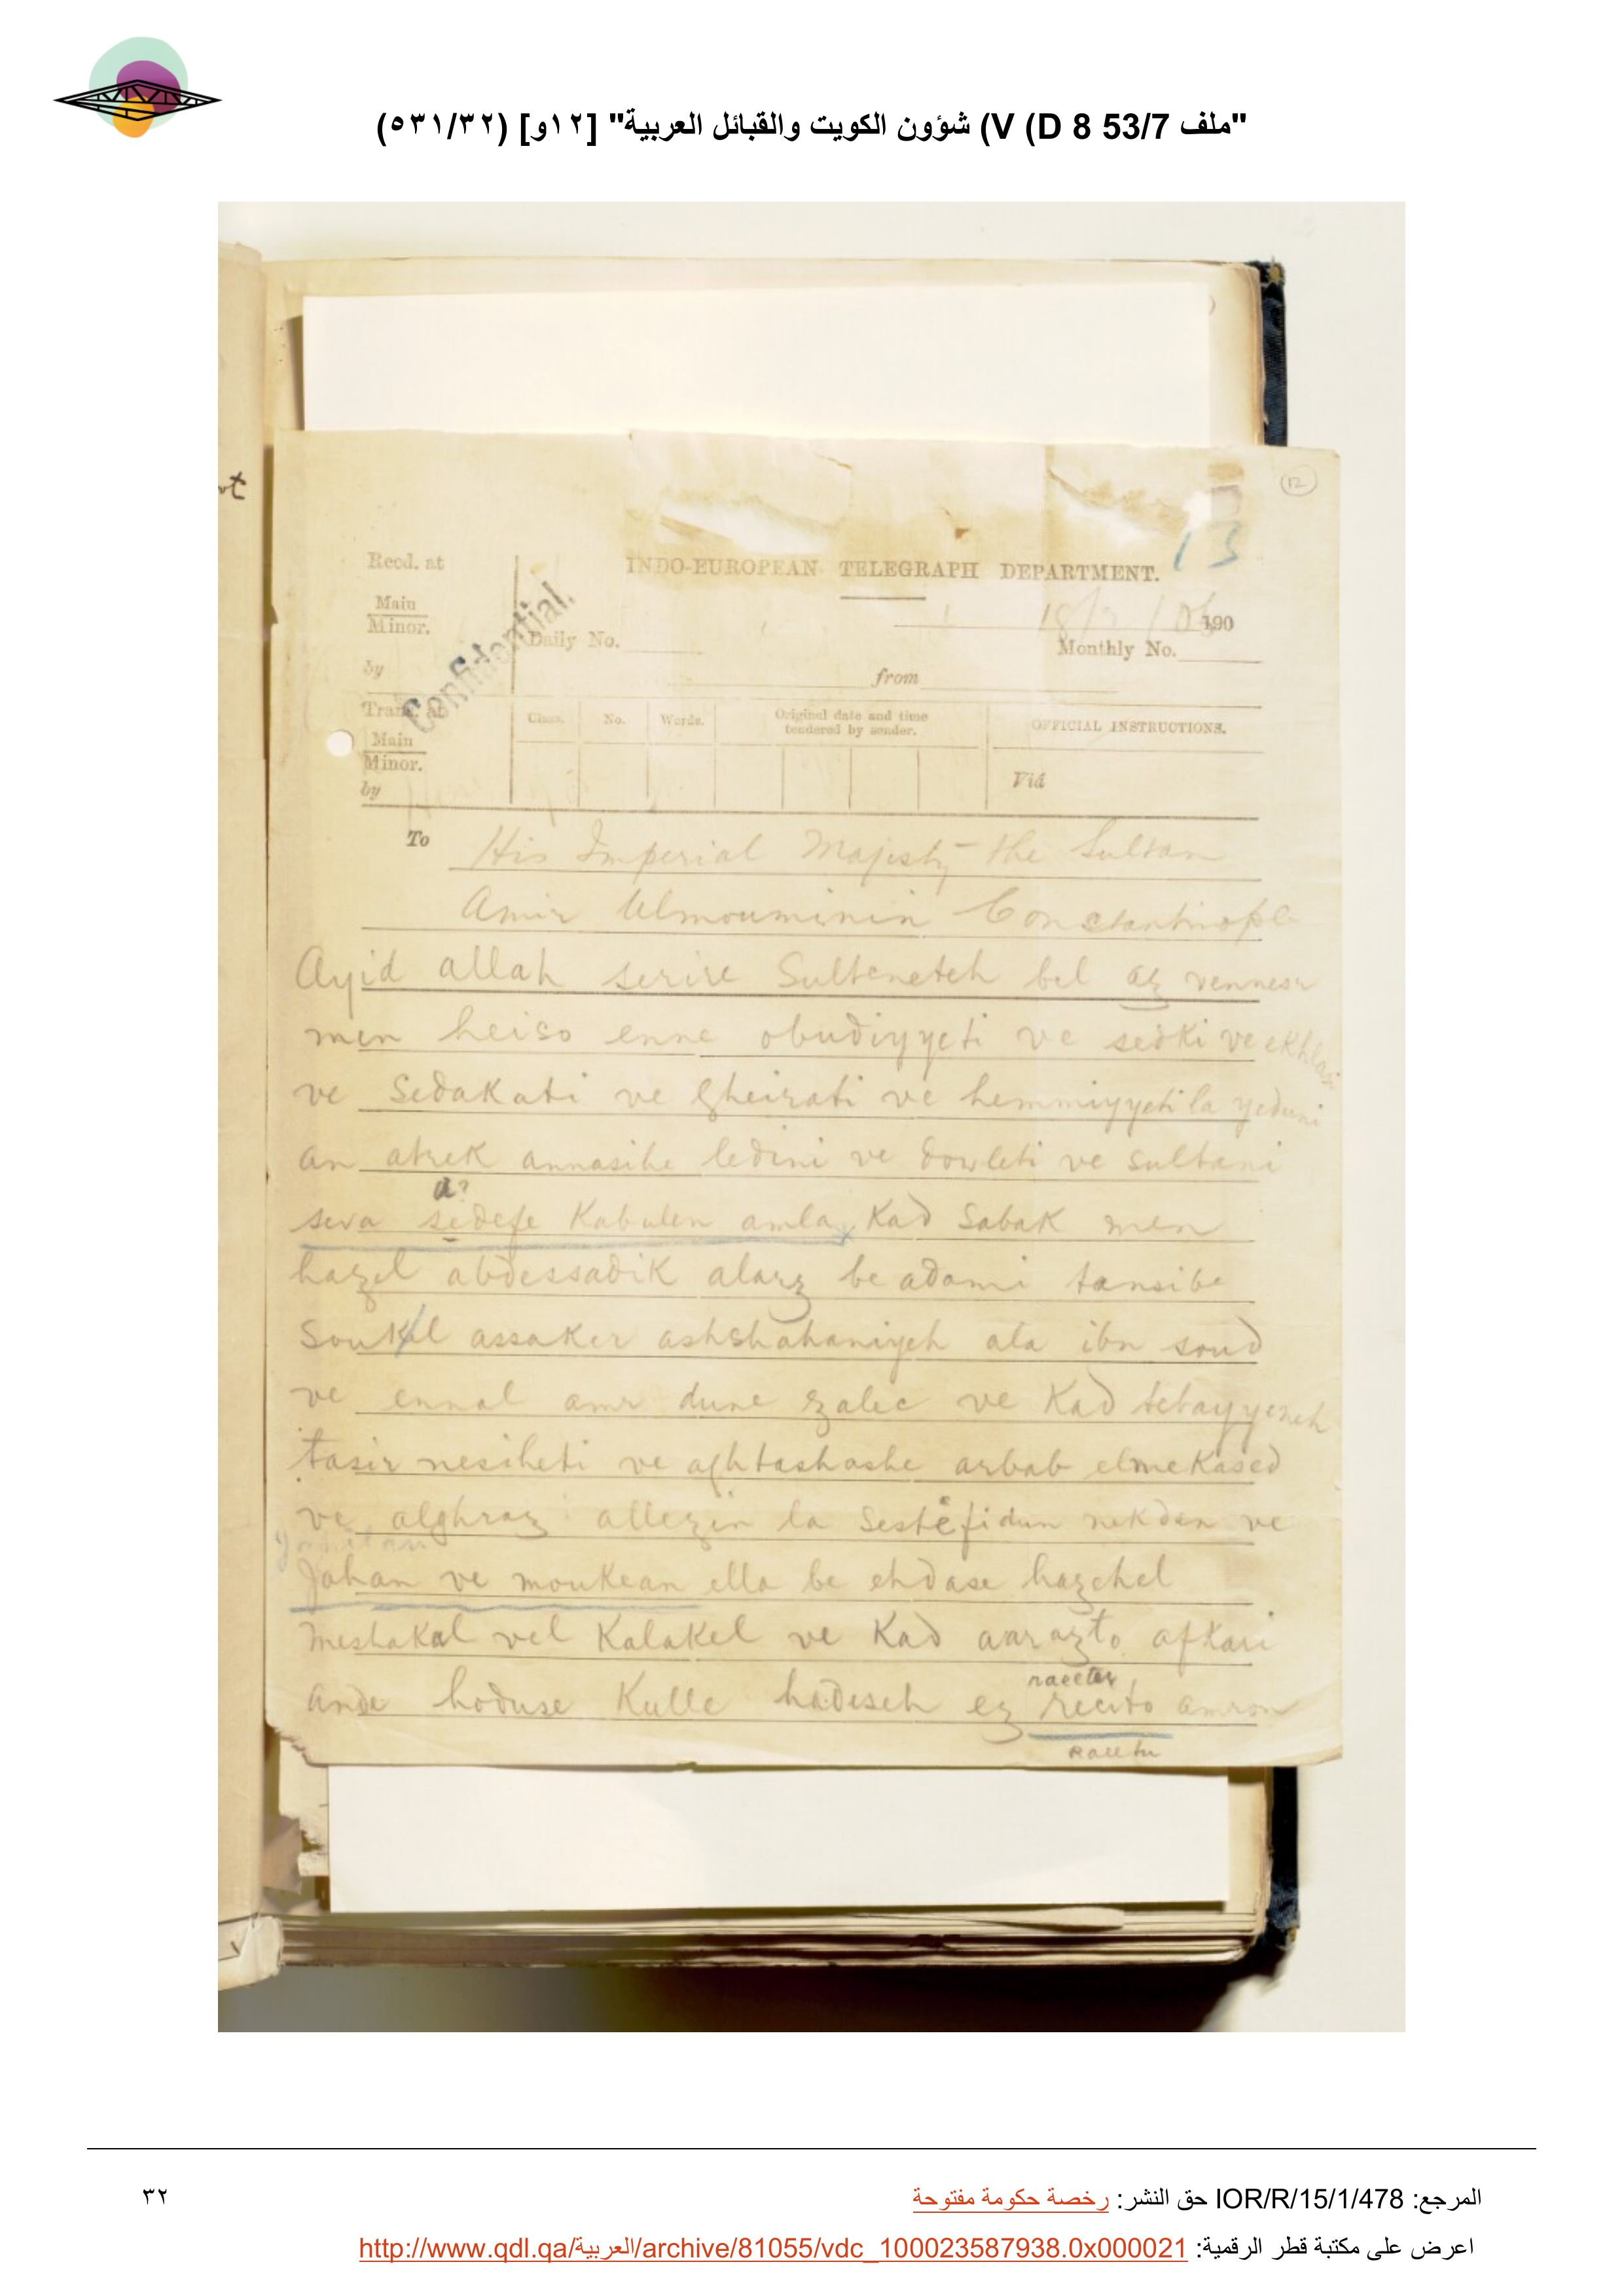 "ملف 53/7 D 8) V) شؤون الكويت والقبائل العربية" [١٢و] (٥٣١/٣٢)
12
13
INDO-EUROPEAN TELEGRAPH DEPARTMENT.
Recd. at
Main
Minor.
by
Confidential.
190
Daily No.
Monthly No.
from
Trans. at
Main
Minor.
by
Class. No. Words. Original date and time tendered by sender. OFFICIAL INSTRUCTIONS.
Viâ
To His Imperial Majesty the Sultan
Amir Ulmouminin Constantinople
Ayid allah serire Sulteneteh bel az vennesr
men heiso enne obudiyyeti ve sedki ve ekhlasi
ve Sedakati ve gheirati ve hemmiyyeti la yeduni
an atrek annasihe ledini ve dowleti ve sultani
a?
seva sedefe Kabulen amla Kad Sabak men
hazel abdessadik alarz be adami tansibe
Soukel assaker ashshahaniyeh ala ibn soud
ve ennal amr dune zalec ve Kad tebayyeneh
tasir nesiheti ve aghtashashe arbab elmekased
ve alghraz allezin la sestefidun nekden ve
Jahan ve moukean ella be ehdase hazehel
meshakal vel Kalakel ve Kad aarazto afkari
raeeter
ande hoduse Kulle hadeseh ez recito amron
raeetu
المرجع: IOR/R/15/1/478 حق النشر: رخصة حكومة مفتوحة
٣٢
اعرض على مكتبة قطر الرقمية: http://www.qdl.qa/العربية/archive/81055/vdc_100023587938.0x000021